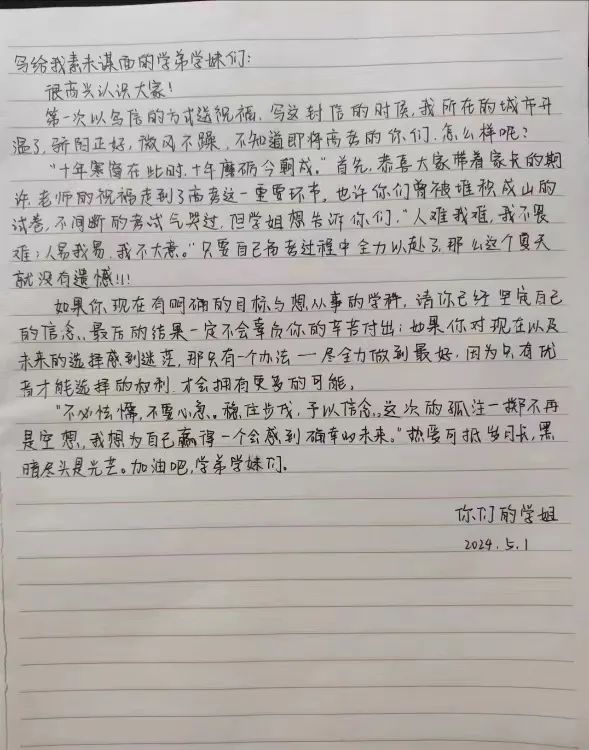 写给我素未谋面的学弟学妹们：
很高兴认识大家！
第一次以写信的方式送祝福，写这封信的时候，我所在的城市升
温了，骄阳正好，微风不躁，不知道即将高考的你们，怎么样呢？
“十年寒窗在此时，十年磨砺今朝成。”首先，恭喜大家带着家长的期
许，老师的祝福走到了高考这一重要环节，也许你们曾被堆积成山的
试卷，不间断的考试气哭过，但学姐想告诉你们，“人难我难，我不畏
难；人易我易，我不大意。”只要自己备考过程中全力以赴了，那么这个夏天
就没有遗憾!!!
如果你现在有明确的目标与想从事的学科，请你已经坚定自己
的信念，最后的结果一定不会辜负你的辛苦付出；如果你对现在以及
未来的选择感到迷茫，那只有一个办法—尽全力做到最好，因为只有优
者才能选择的权利，才会拥有更多的可能。
“不必怯懦，不要心急。稳住步伐，予以信念。这次的孤注一掷不再
是空想，我想为自己赢得一个会感到确幸的未来。”热爱可抵岁月长，黑
暗尽头是光芒。加油吧，学弟学妹们。
你们的学姐
2024.5.1